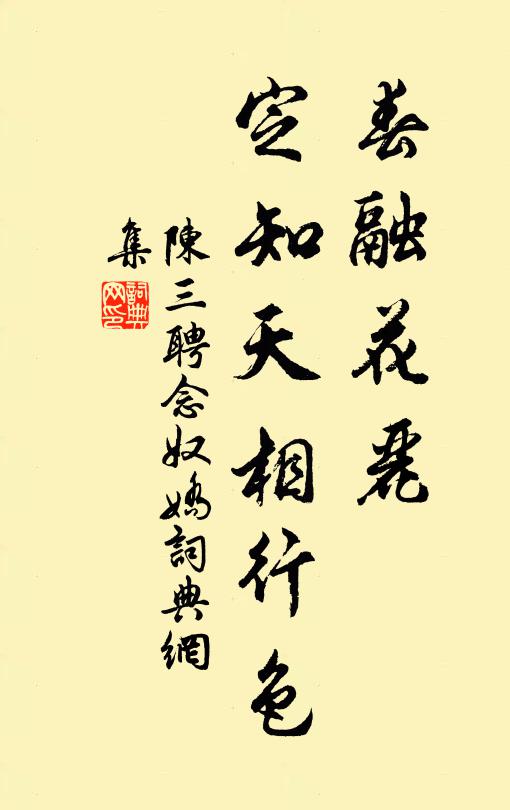 春融花麗
定知天相行色
陳三聘念奴嬌詞典網
集
詞典網印